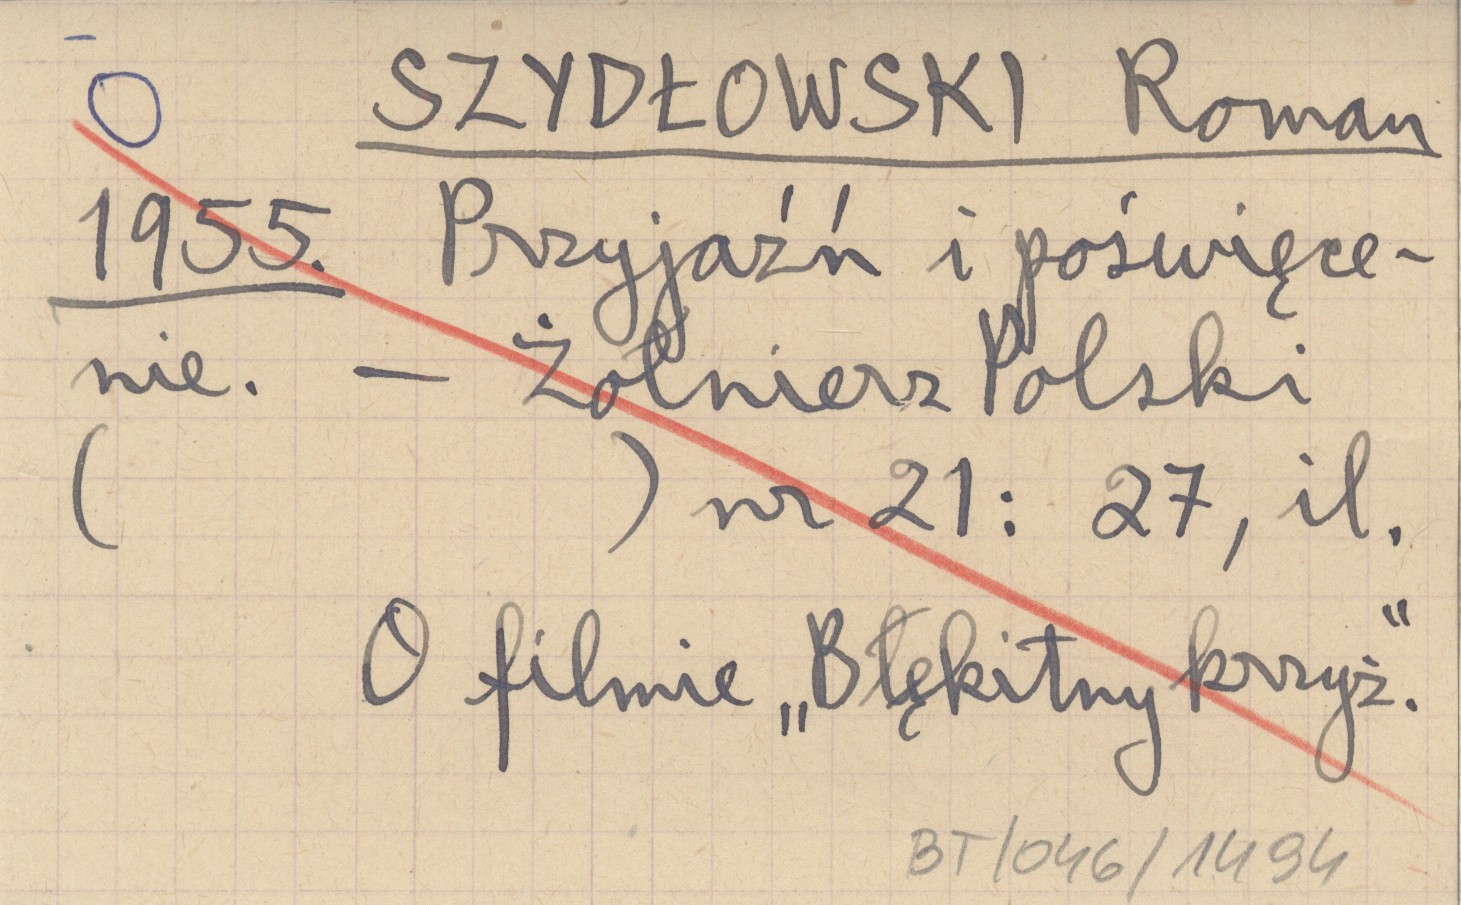 O SZYDŁOWSKI Roman
1955. Przyjaźń i poświęce-
nie. — Żołnierz Polski
( ) nr 21: 27, il.
O filmie „Błękitny krzyż".
BT/046/1494